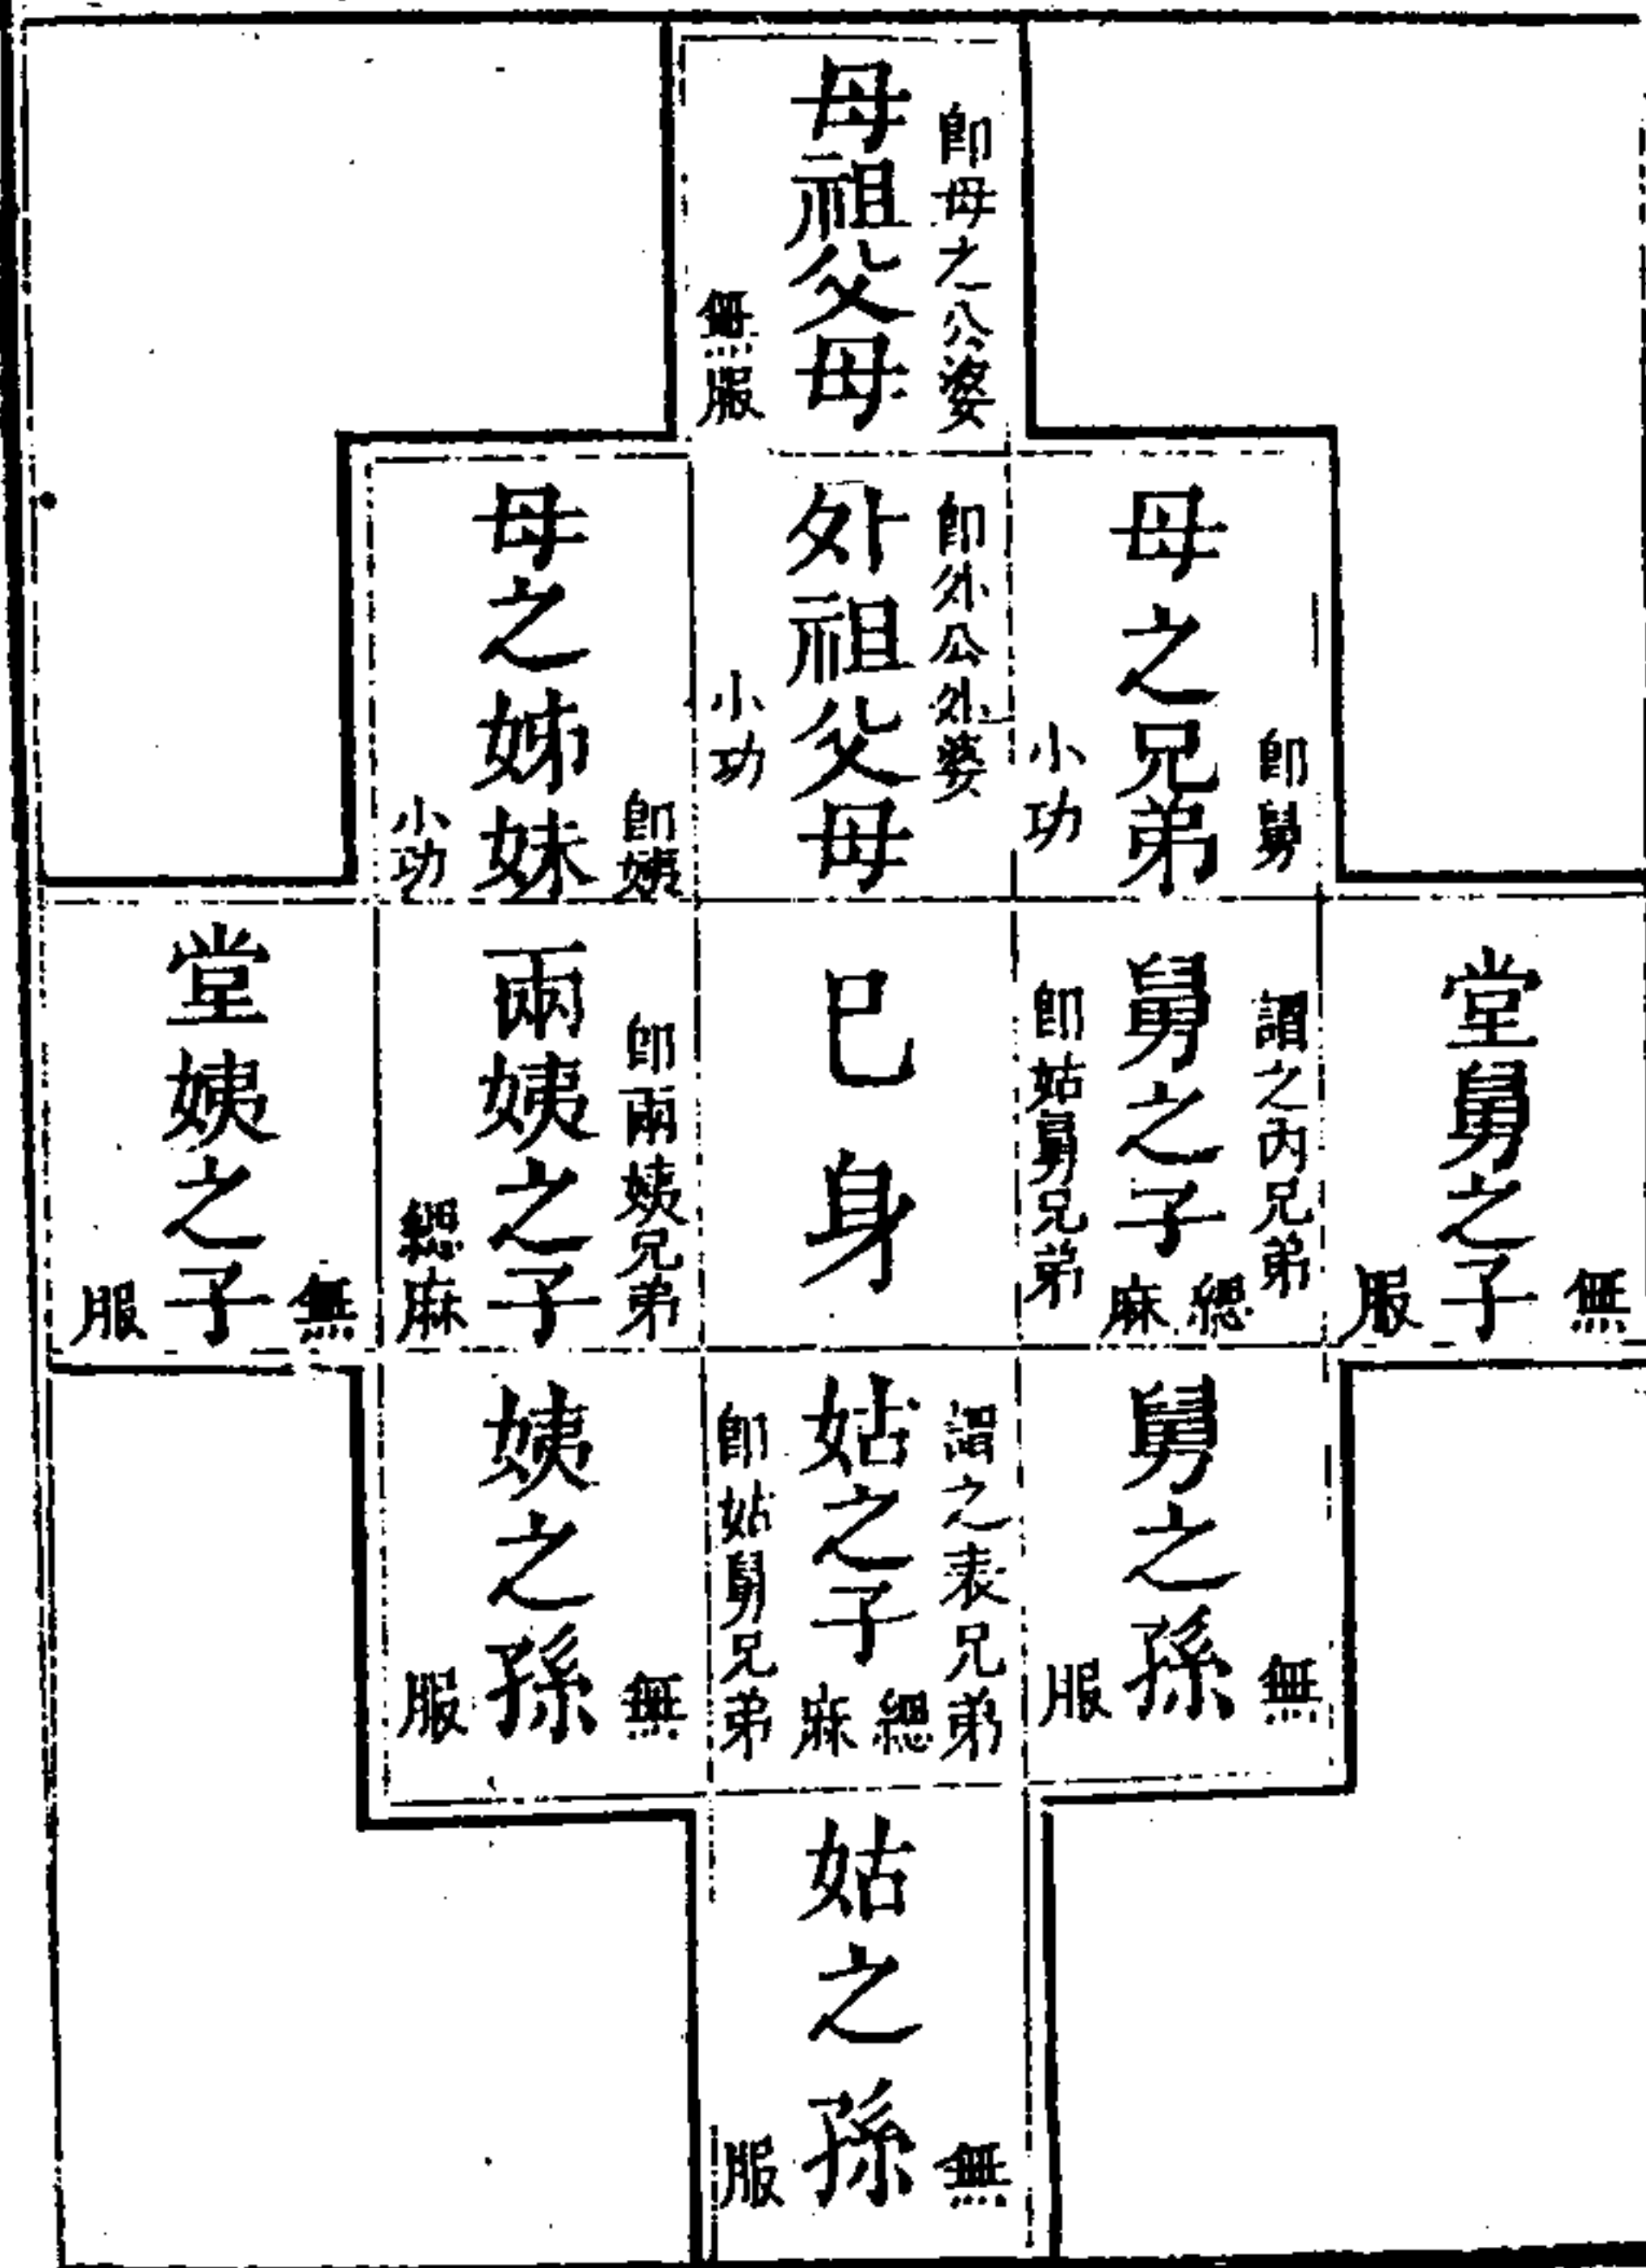 即母之公婆
母祖父母
無服
即舅
母之兄弟
小功
即外公外婆
外祖父母
小功
即姨
母之姊妹
小功
堂舅之子
無服
謂之內兄弟
舅之子
即姑舅兄弟
緦麻
己身
即兩姨兄弟
兩姨之子
緦麻
堂姨之子
無服
舅之孫
無服
謂之表兄弟
姑之子
即姑舅兄弟
緦麻
姨之孫
無服
姑之孫
無服